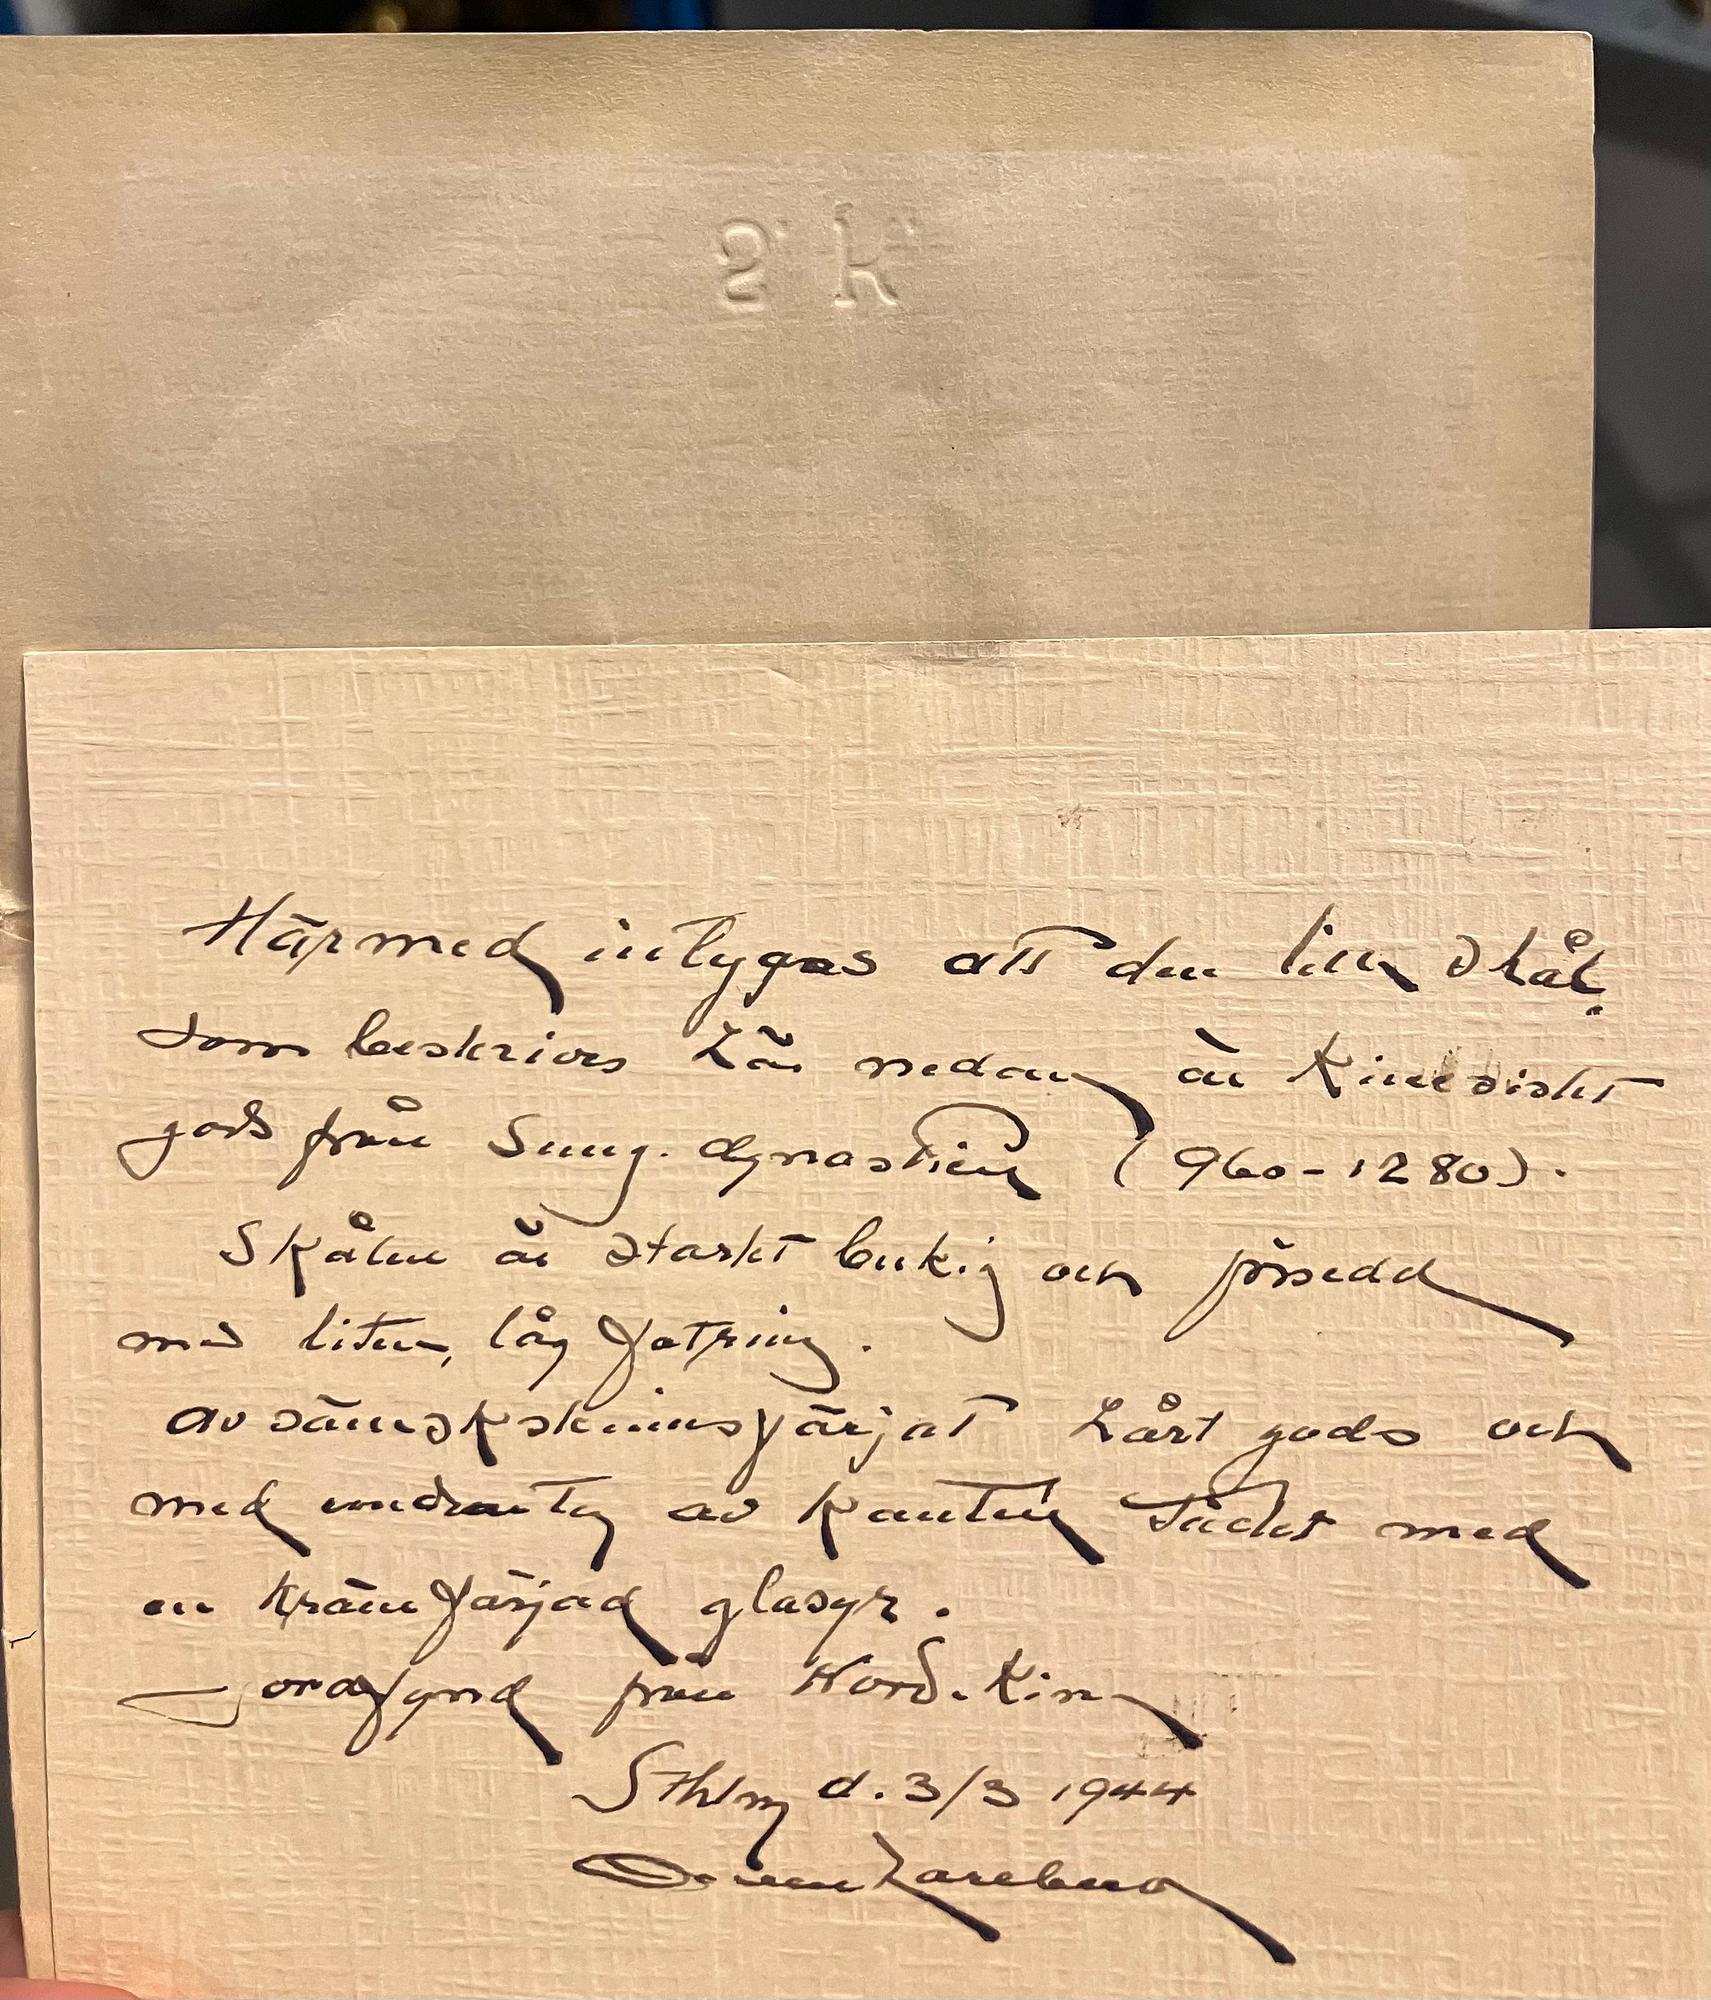 2 k
Härmed intygas att den lilla skål
som beskrives här nedan är Kinesiskt
gods från Sung-dynastien (960-1280).
Skålen är starkt bukig och försedd
med liten, låg fotring.
av sämskskinnsfärjat hårt gods och
med undantag av kanten täckt med
en krämfärjad glasyr.
Jordfynd från Nord-Kina
Sthlm d. 3/3 1944